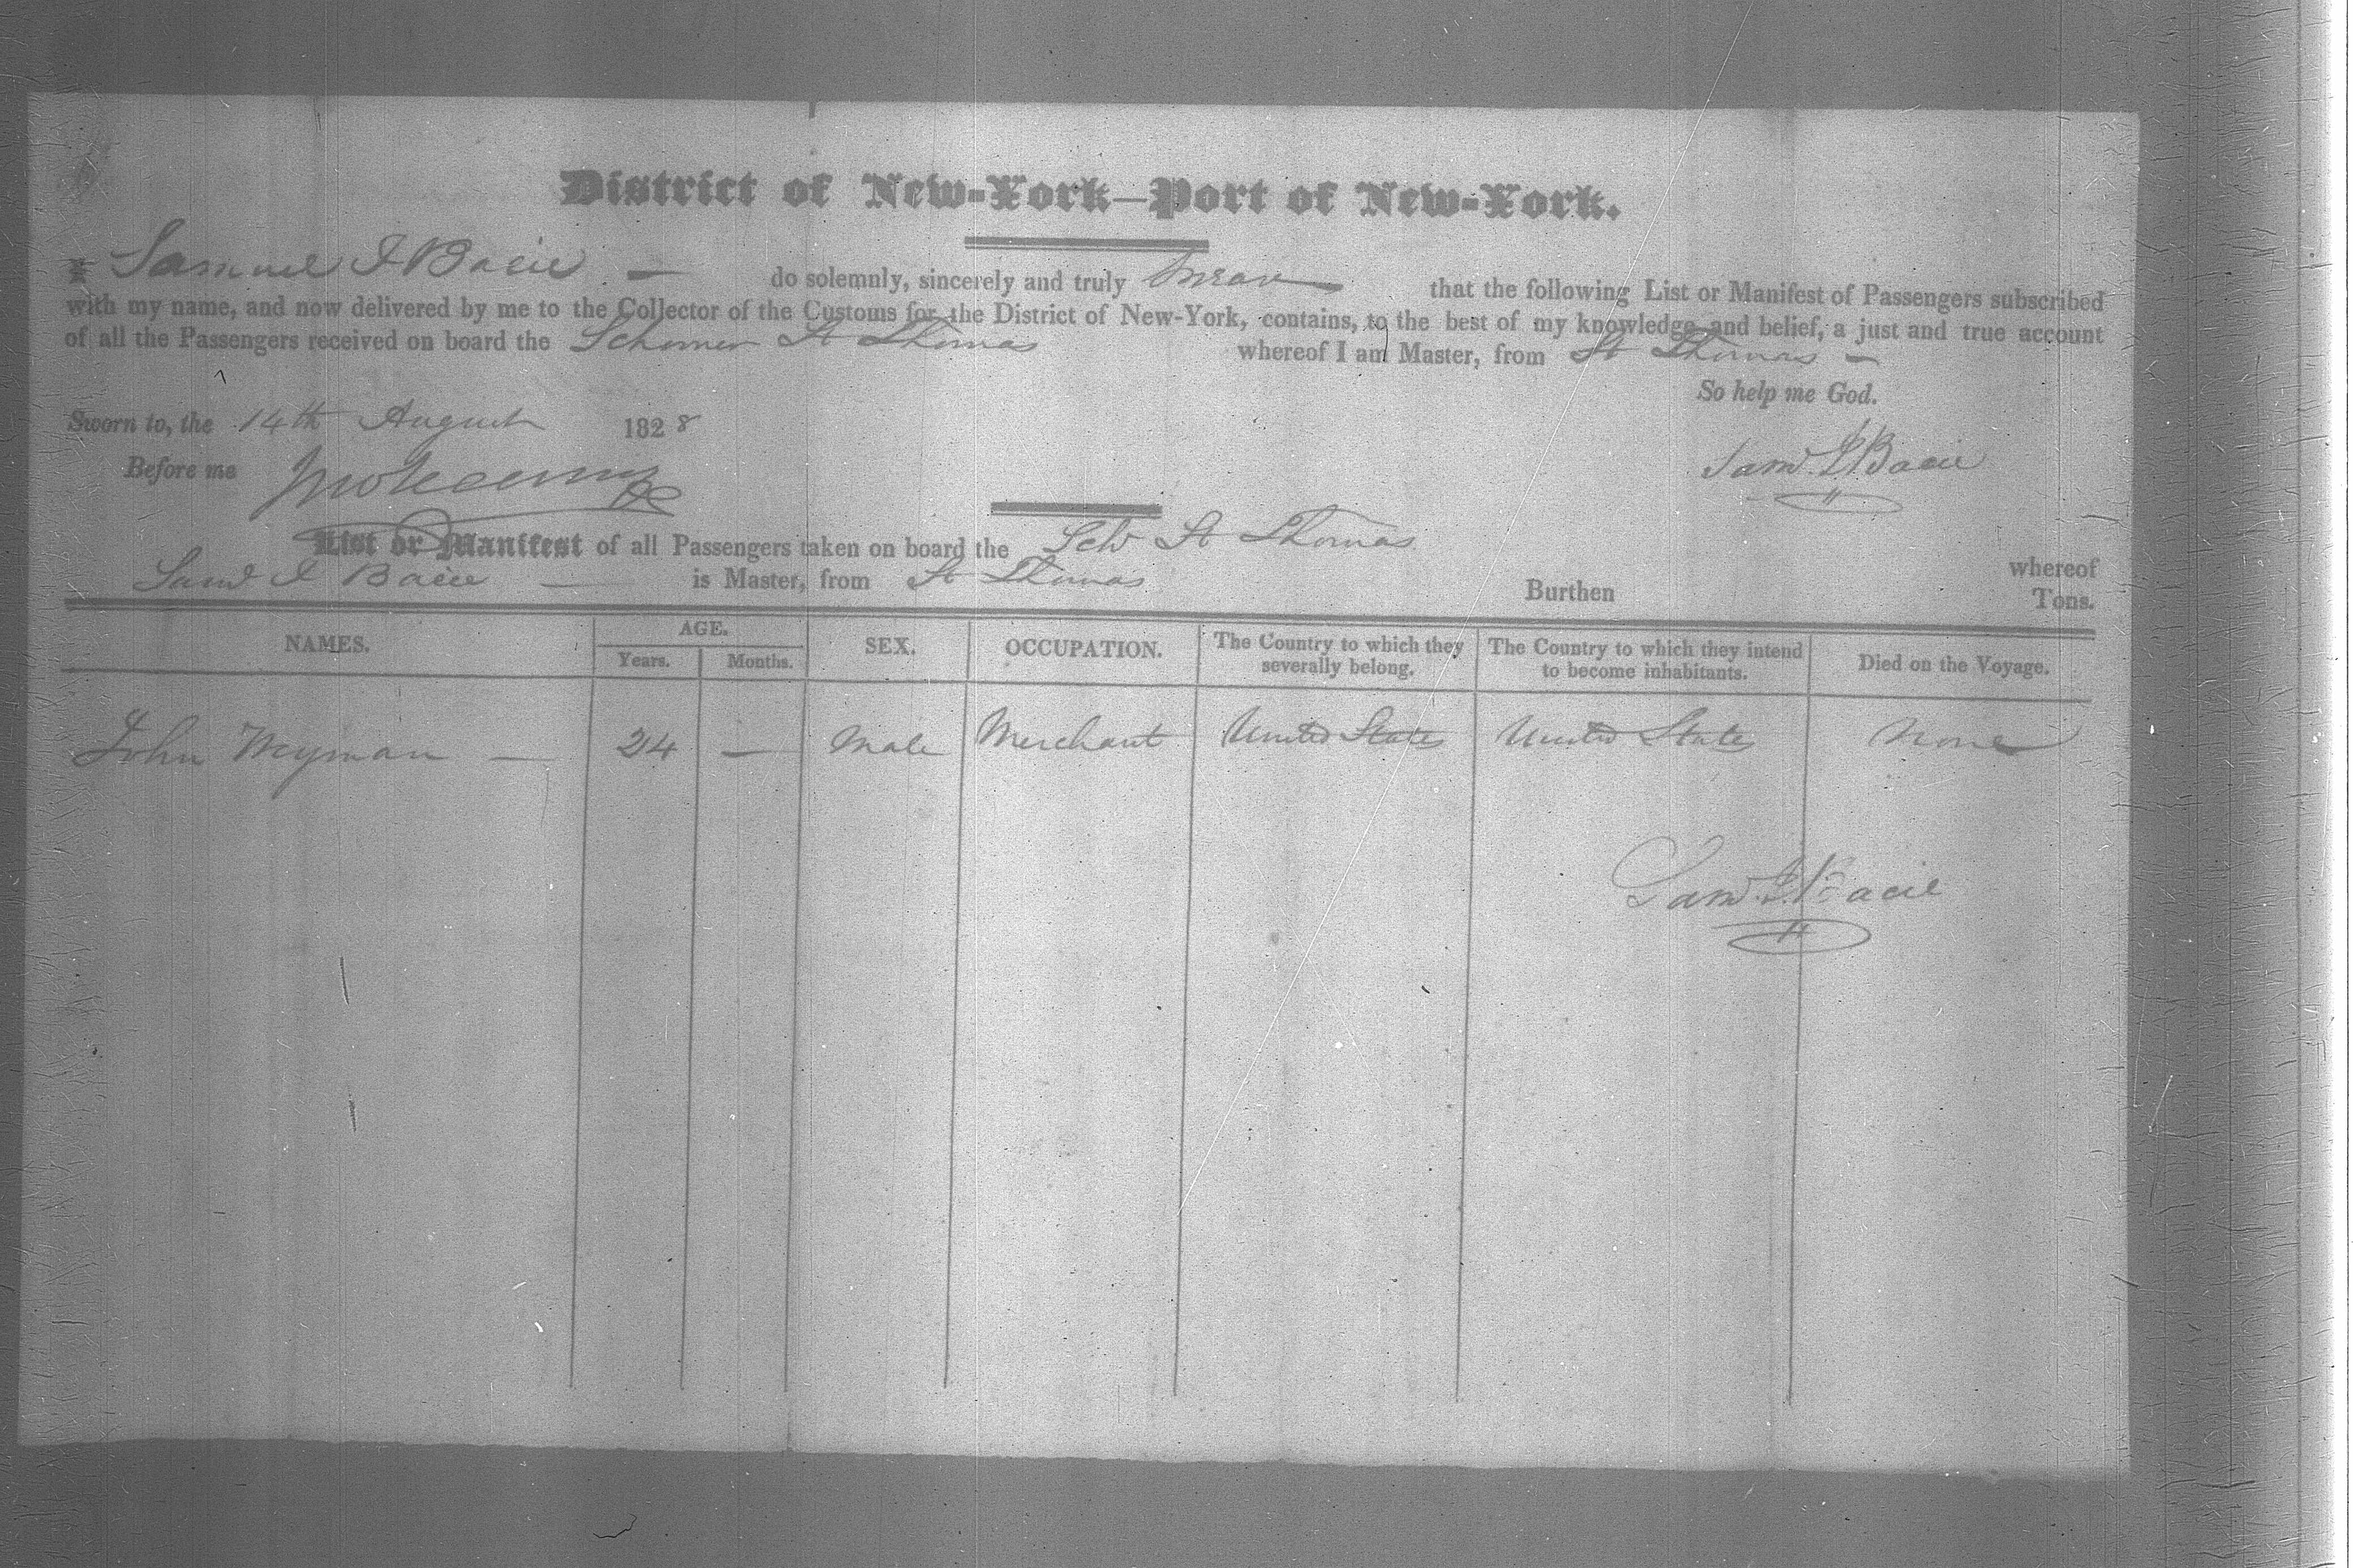 District of New-York—Port of New-York.
I Samuel I Bacie — do solemnly, sincerely and truly swear that the following List or Manifest of Passengers subscribed
with my name, and now delivered by me to the Collector of the Customs for the District of New-York, contains, to the best of my knowledge and belief, a just and true account
of all the Passengers received on board the Schooner St Thomas whereof I am Master, from St Thomas —
So help me God.
Sworn to, the 14th August 1828
Before me
Saml I Bacie
List or Manifest of all Passengers taken on board the Schr St Thomas whereof
Saml I Bacie — is Master, from St Thomas Burthen Tons.
NAMES. AGE. Years. Months. SEX. OCCUPATION. The Country to which they severally belong. The Country to which they intend to become inhabitants. Died on the Voyage.
John Weyman — 24 — Male Merchant United States United States None
Saml I Bacie